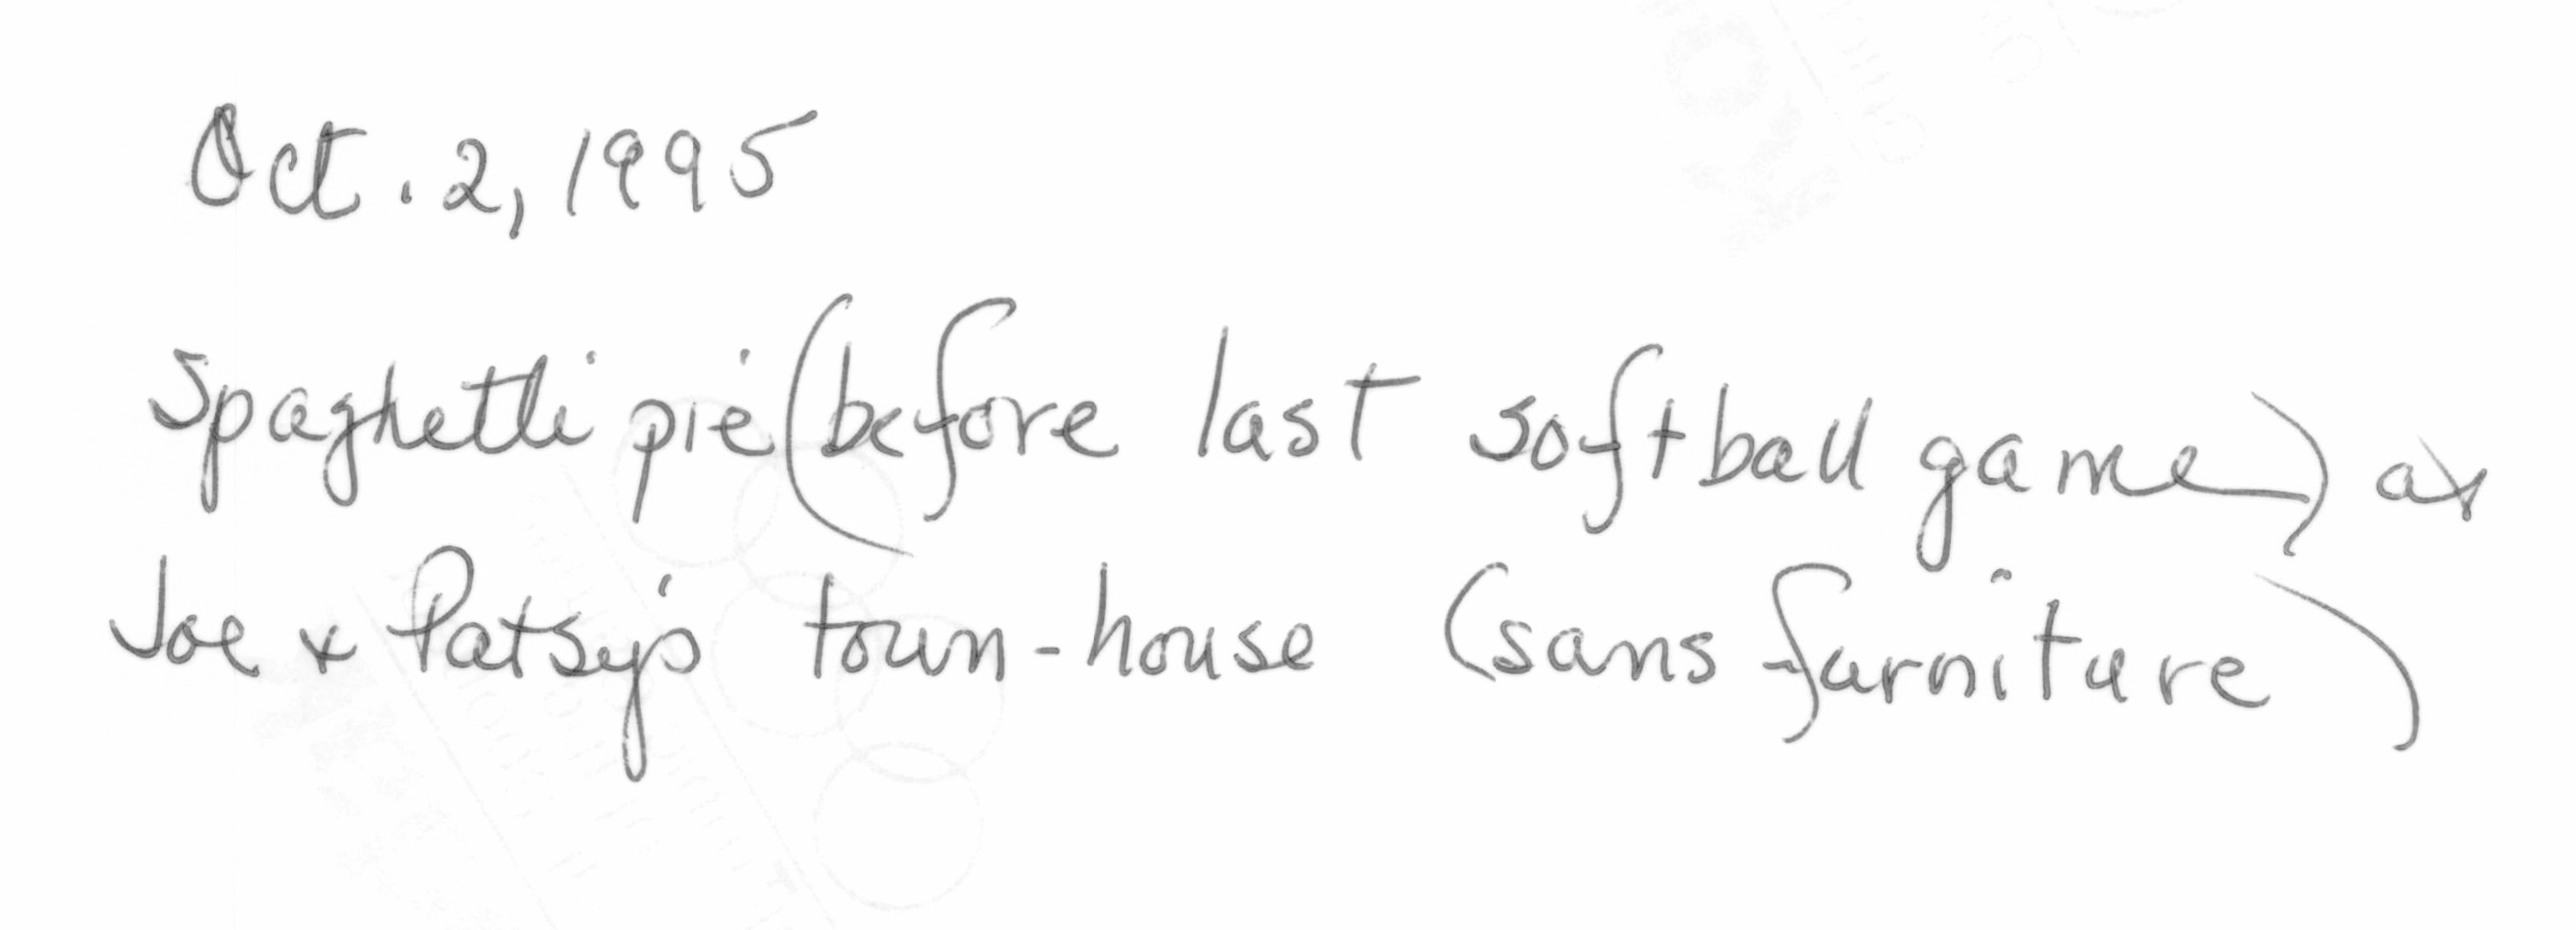 Oct. 2, 1995
Spaghetti pie (before last softball game) at
Joe & Patsy's town-house (sans furniture)